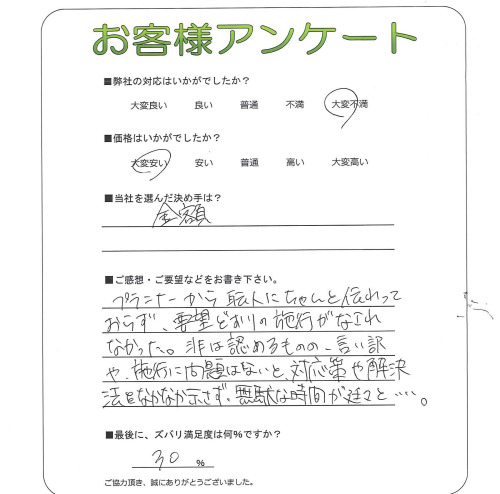 お客様アンケート
■弊社の対応はいかがでしたか?
大変良い 良い 普通 不満 大変不満
■価格はいかがでしたか?
大変安い 安い 普通 高い 大変高い
■当社を選んだ決め手は?
金額
■ご感想・ご要望などをお書き下さい。
プランナーから職人にちゃんと伝わって
おらず、要望どおりの施行がなされ
なかった。非は認めるものの、言い訳
や、施行に問題はないと、対応策や解決
法はなかなか示さず、無駄な時間が延々と……。
■最後に、ズバリ満足度は何%ですか?
30 %
ご協力頂き、誠にありがとうございました。